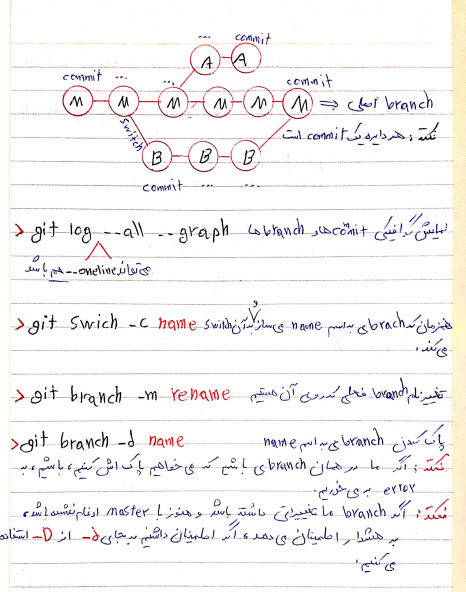 ... commit
A A
commit ... ... commit
M M M M M M ⇒ branch اصلی
switch
نکته: هر دایره یک commit است
B B B
commit ... ...
> git log --all --graph نمایش گرافیکی commit ها و branch ها
می‌تواند --oneline هم باشد
> git swich -c name همزمان که brach ی به اسم name می‌سازد به آن switch
می‌کند.
> git branch -m rename تغییر نام branch فعلی که روی آن هستیم
> git branch -d name پاک کردن branch ی به اسم name
نکته: اگر ما در همان branch ی باشیم که می‌خواهیم پاک اش کنیم، باشیم، به
error بر می‌خوریم.
نکته: اگر branch ما تغییراتی داشته باشد و هنوز با master ادغام نشده باشد،
به هشدار اطمینان می‌دهد، اگر اطمینان داشتیم به جای -d از -D استفاده
می‌کنیم.